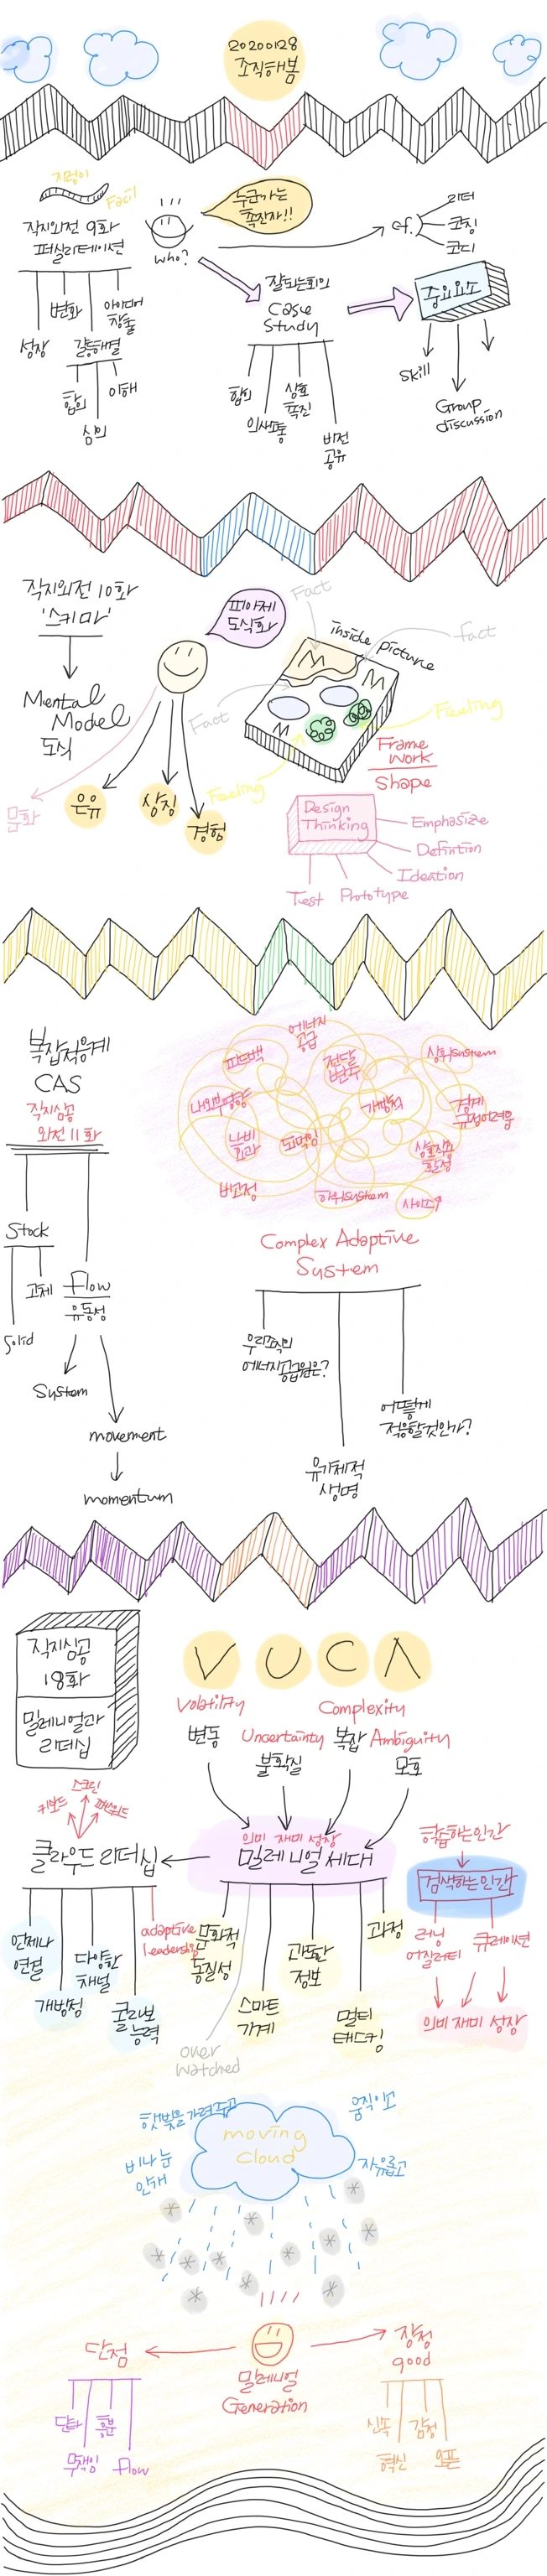 20200128
조직해봄
지렁이
Facil
직지외전 9화
퍼실리테이션
성장
변화
갈등해결
아이디어
창출
합의
심의
이해
who?
누군가는
촉진자!!
cf.
리더
코칭
코디
잘되는회의
Case
Study
합의
의사소통
상호
촉진
비전
공유
중요요소
skill
Group
discussion
직지외전 10화
'스키마'
Mental
Model
도식
문화
은유
상징
경험
피아제
도식화
Fact
inside picture
fact
Fact
M
M
M
Feeling
Feeling
Frame
Work
Shape
Design
Thinking
Emphasize
Definition
Ideation
Prototype
Test
복잡적응계
CAS
직지심공
외전 11화
Stock
고체
Solid
flow
유동성
System
movement
momentum
에너지
공급
피드백
전달
변두
상위system
내외부영향
개방적
경계
규정어려움
나비
효과
되먹임
상호작용
활성
비고정
하위system
사이즈
Complex Adaptive
System
우리조직의
에너지공급원은?
유기체적
생명
어떻게
적응할것인가?
직지심공
18화
밀레니얼과
리더십
V U C A
Volatility
변동
Uncertainty
불확실
Complexity
복잡
Ambiguity
모호
키보드
스크린
패스워드
클라우드 리더십
언제나
연결
개방성
다양한
채널
콜라보
능력
adaptive
leadership
의미 재미 성장
밀레니얼 세대
문화적
동질성
over
watched
스마트
기계
과도한
정보
멀티
태스킹
과정
학습하는인간
검색하는인간
러닝
어질리티
큐레이션
의미 재미 성장
햇빛을가려주고
비나 눈
안개
moving
cloud
움직이고
자유롭고
밀레니얼
Generation
단점
단타
무책임
흥분
flow
장점
good
신속
혁신
감정
오픈